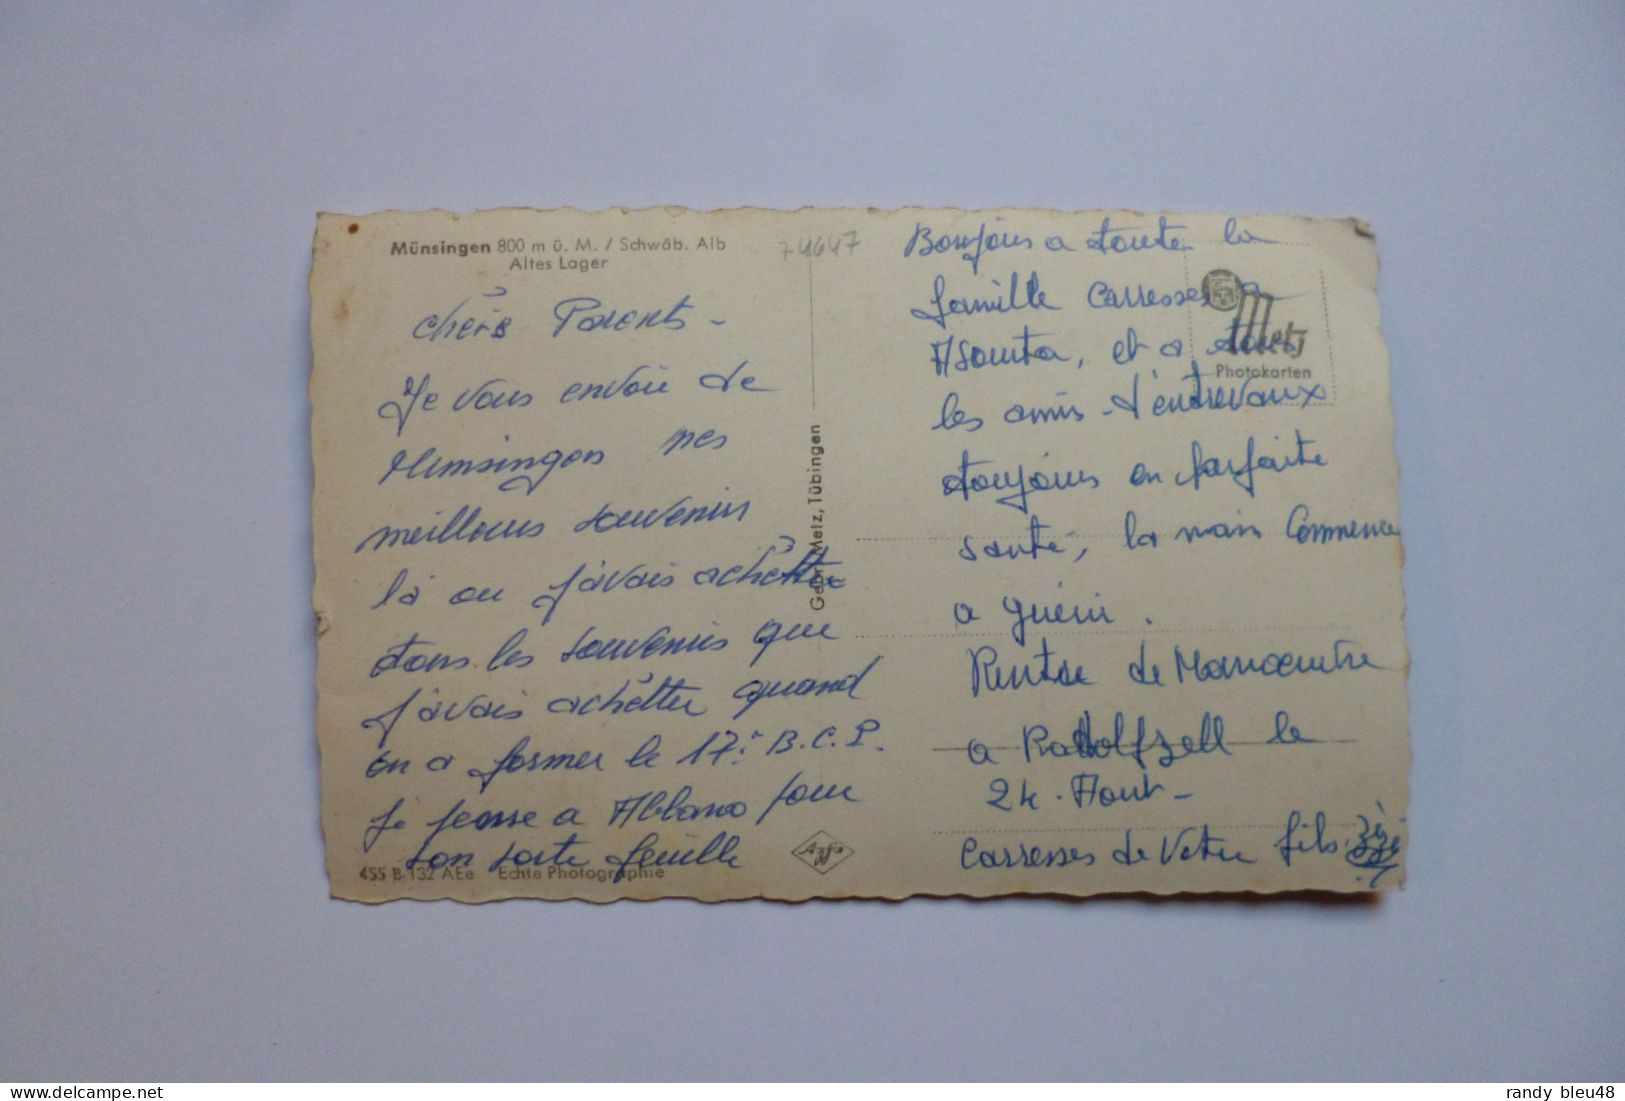 Münsingen 800 m ü. M. / Schwäb. Alb
Altes Lager
74647
chèrs Parents -
Je vous envoie de
Munsingen mes
meilleurs souvenirs
là ou j'avais achêtter
dans les souvenirs que
j'avais achêtter quand
on a former le 17è B.C.P.
je pense a Abbano pour
son feuille
455 B 132 AEe Echte Photographie
Gebr. Metz, Tübingen
Agfa
Bonjour a toute la
famille Carresses a
Asounta, et a tous
les amis d'entrevaux
toujours en parfaite
santé, la main Commence
a guérir.
Rentrée de Manoeuvre
a Radolfzell le
24 Aout -
Carresses de Votre fils Zizi
Metz
Photokarten
randy bleu48